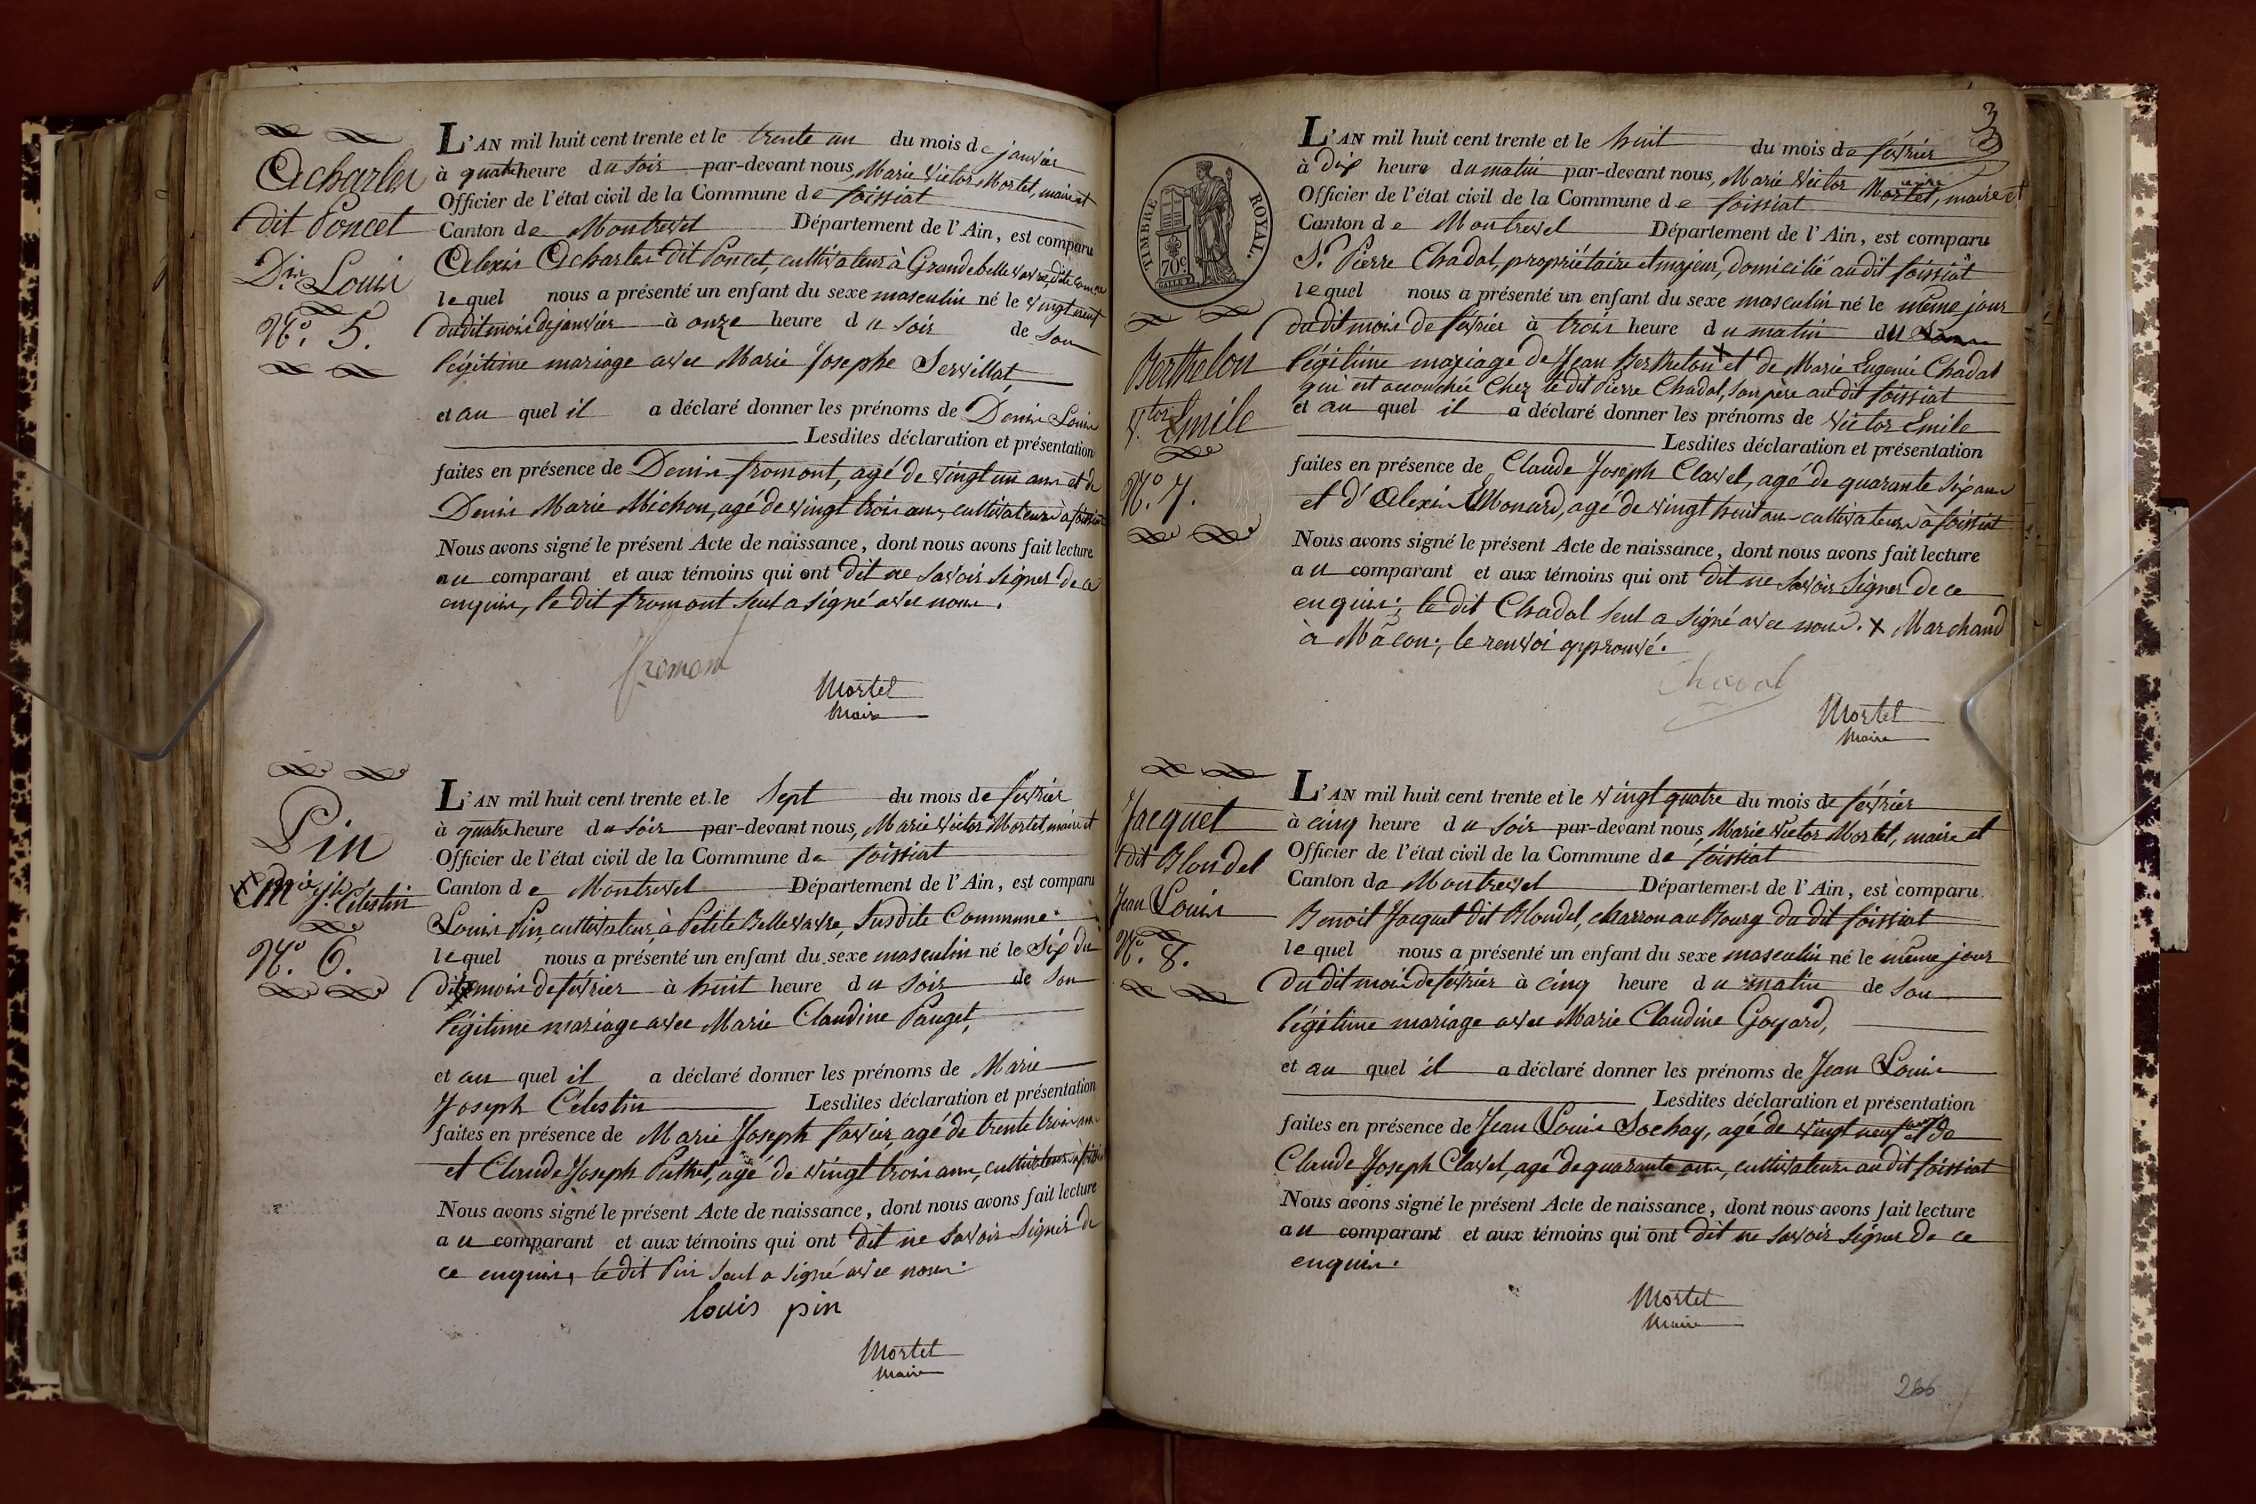 Acharles
dit Poncet
D.is Louis
N.º 5.
L'AN mil huit cent trente et le trente un du mois de janvier
à quatre heure du soir par-devant nous, Marie Victor Mortel, maire et
Officier de l'état civil de la Commune de foissiat
Canton de Montrevel Département de l'Ain, est comparu
Alexis Acharles dit Poncet, cultivateur à Grande bellevavre,
lequel nous a présenté un enfant du sexe masculin né le vingt neuf
dudit mois de janvier à onze heure du soir de son
légitime mariage avec Marie Josephe Servillat,
et au quel il a déclaré donner les prénoms de Denis Louis
Lesdites déclaration et présentation
faites en présence de Denis fromont, agé de vingt un ans et de
Denis Marie Michon, agé de vingt trois ans, cultivateurs à foissiat
Nous avons signé le présent Acte de naissance, dont nous avons fait lecture
au comparant et aux témoins qui ont dit ne savoir signer de ce
enquis, le dit fromont seul a signé avec nous.
fromont
Mortel
Maire
Pin
M.ie j.h Célestin
N.º 6.
L'AN mil huit cent trente et le sept du mois de février
à quatre heure du soir par-devant nous, Marie Victor Mortel, maire et
Officier de l'état civil de la Commune de foissiat
Canton de Montrevel Département de l'Ain, est comparu
Louis Pin, cultivateur à Petite Bellevavre, susdite Commune.
lequel nous a présenté un enfant du sexe masculin né le six du
dit mois de février à huit heure du soir de son
légitime mariage avec Marie Claudine Pauget,
et au quel il a déclaré donner les prénoms de Marie
Joseph Célestin Lesdites déclaration et présentation
faites en présence de Marie Joseph favier, agé de trente trois ans
et Claude Joseph Puthet, agé de vingt trois ans, cultivateurs à foissiat
Nous avons signé le présent Acte de naissance, dont nous avons fait lecture
au comparant et aux témoins qui ont dit ne savoir signer de
ce enquis, le dit Pin seul a signé avec nous.
louis pin
Mortel
Maire
3
TIMBRE ROYAL.
70c
Berthelon
V.tor Emile
N.º 7.
L'AN mil huit cent trente et le huit du mois de février
à dix heure du matin par-devant nous, Marie Victor Mortel, maire et
Officier de l'état civil de la Commune de foissiat
Canton de Montrevel Département de l'Ain, est comparu
S.r Pierre Chadal, propriétaire et majeur, domicilié audit foissiat
lequel nous a présenté un enfant du sexe masculin né le même jour
dudit mois de février à trois heure du matin du
légitime mariage de Jean Berthelon x et de Marie Eugenie Chadal
qui est accouchée chez le dit Pierre Chadal, son père audit foissiat
et au quel il a déclaré donner les prénoms de Victor Emile
Lesdites déclaration et présentation
faites en présence de Claude Joseph Clavel, agé de quarante six ans
et d'Alexis Monard, agé de vingt huit ans cultivateurs à foissiat
Nous avons signé le présent Acte de naissance, dont nous avons fait lecture
au comparant et aux témoins qui ont dit ne savoir signer de ce
enquis; le dit Chadal seul a signé avec nous. x Marchand
à Mâcon; le renvoi approuvé.
Chadal
Mortel
Maire
Jacquet
dit Blondel
Jean Louis
N.º 8.
L'AN mil huit cent trente et le vingt quatre du mois de février
à cinq heure du soir par-devant nous, Marie Victor Mortel, maire et
Officier de l'état civil de la Commune de foissiat
Canton de Montrevel Département de l'Ain, est comparu
Benoit Jacquet dit Blondel, charron au Bourg du dit foissiat
lequel nous a présenté un enfant du sexe masculin né le même jour
du dit mois de février à cinq heure du matin de son
légitime mariage avec Marie Claudine Goyard,
et au quel il a déclaré donner les prénoms de Jean Louis
Lesdites déclaration et présentation
faites en présence de Jean Louis Sochay, agé de vingt neuf ans et de
Claude Joseph Clavel, agé de quarante ans, cultivateurs audit foissiat
Nous avons signé le présent Acte de naissance, dont nous avons fait lecture
au comparant et aux témoins qui ont dit ne savoir signer de ce
enquis.
Mortel
Maire
266